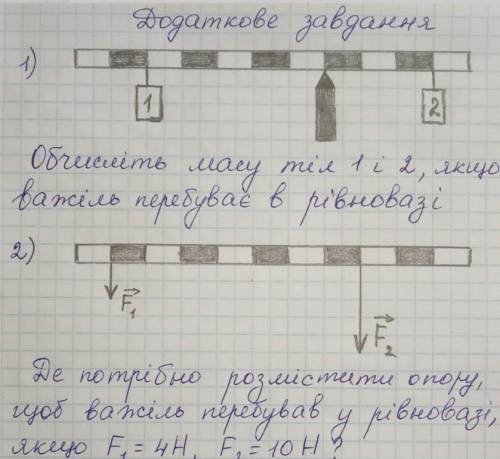 Додаткове завдання
1)
1
2
Обчисліть масу тіл 1 і 2, якщо
важіль перебуває в рівновазі
2)
F₁
F₂
Де потрібно розмістити опору,
щоб важіль перебував у рівновазі,
якщо F₁ = 4Н, F₂ = 10 Н?